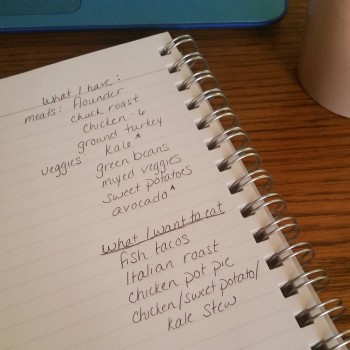 What I have:
meats: flounder
chuck roast
chicken - 6
ground turkey
veggies Kale*
green beans
mixed veggies
sweet potatoes
avocado*
What I want to eat
fish tacos
Italian roast
chicken pot pie
chicken/sweet potato/
Kale Stew